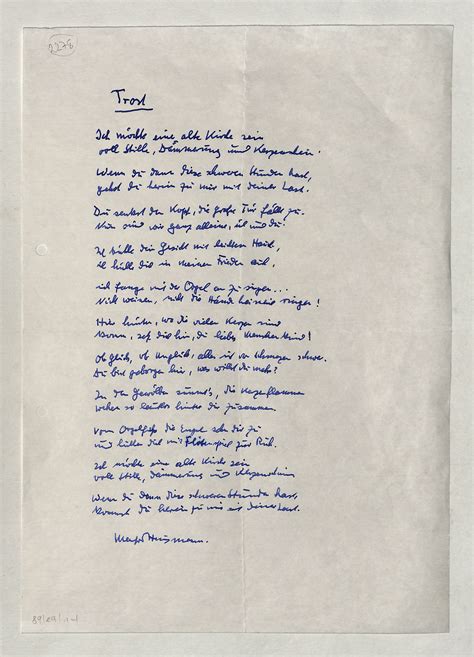 2278
Trost
Ich möchte eine alte Kirche sein
voll Stille, Dämmerung und Kerzenschein.
Wenn du dann diese schweren Stunden hast,
gehst du herein zu mir mit deiner Last.
Du senkst den Kopf, die große Tür fällt zu.
Nun sind wir ganz alleine, ich und du!
Ich dein Gesicht mit Hauch,
ich hülle dich in meinen Frieden auch,
ich fange mit der Orgel an zu singen...
Nicht weinen, nicht die Hände heimlich ringen!
Hier hinten, wo die vielen Kerzen sind
komm, setz dich hin, du liebes Menschenkind!
Ob Glück, ob Unglück, alles ist so schwer.
Du bist geborgen hier, was willst du mehr?
In den Gewölben summt's, die Kerzenflammen
wehen so hinter dir zusammen.
Vom Orgelfuß die Engel sehn dir zu
und hüllen dich mit Flötenspiel zur Ruh.
Ich möchte eine alte Kirche sein
voll Stille, Dämmerung und Kerzenschein
Wenn du dann diese schweren Stunden hast,
kommst du herein zu mir mit deiner Last.
Manfred Hausmann.